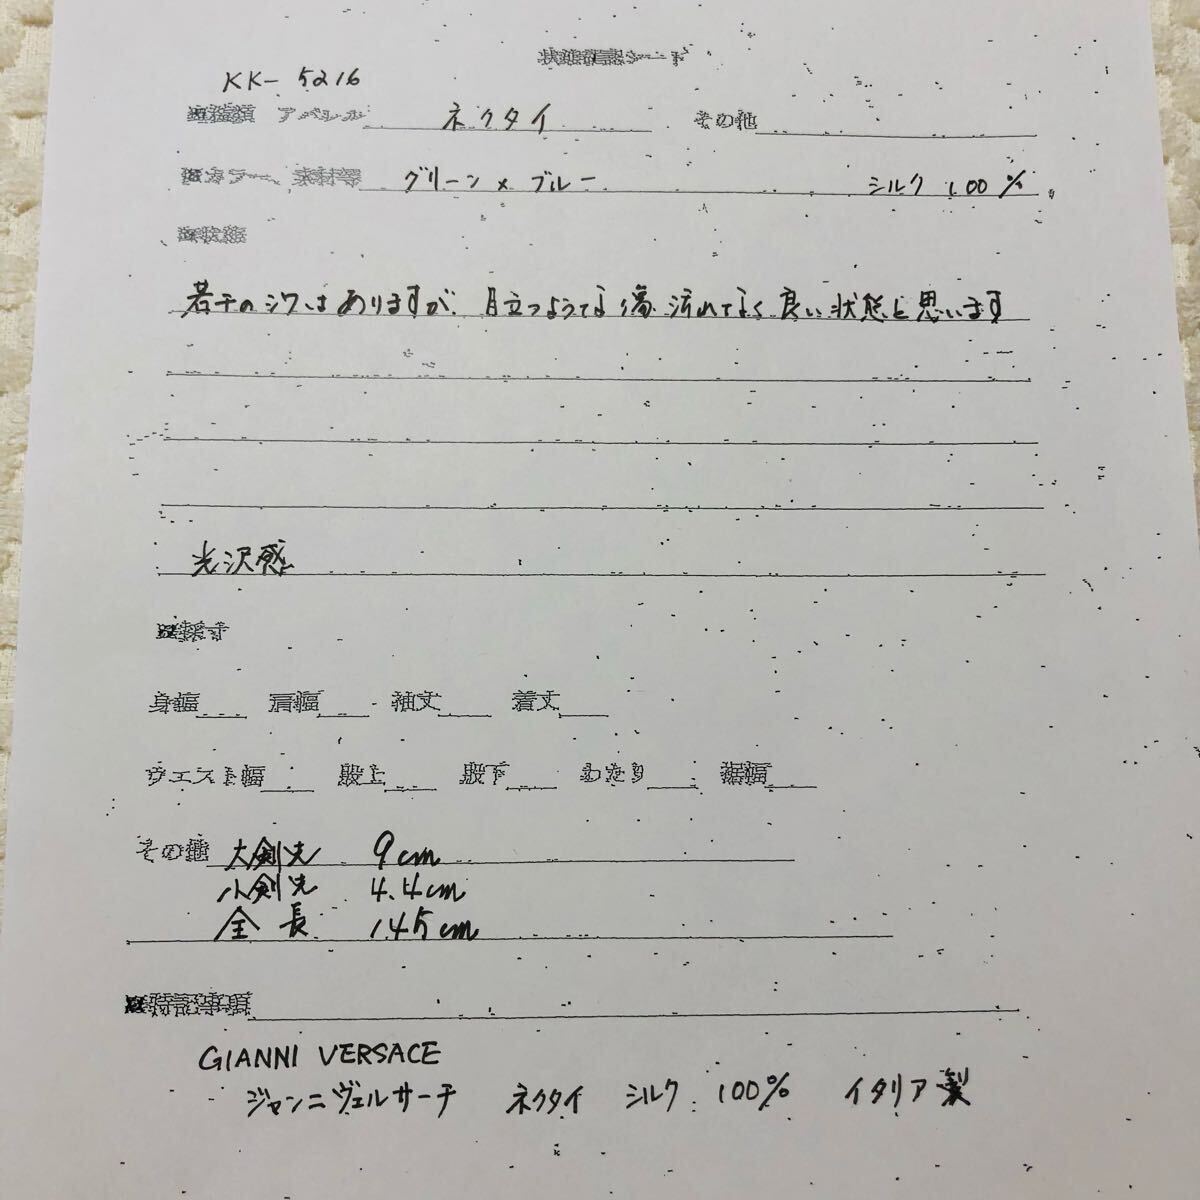 状態確認シート
KK-5216
■種類 アパレル ネクタイ その他
■カラー、素材等 グリーン×ブルー シルク 100%
■状態
若干のシワはありますが、目立つようてな傷 汚れてなく良い状態と思います
光沢感
■採寸
身幅 肩幅 袖丈 着丈
ウエスト幅 股上 股下 わたり 裾幅
その他 大剣先 9cm
小剣先 4.4cm
全長 145cm
■特記事項
GIANNI VERSACE
ジャンニヴェルサーチ ネクタイ シルク 100% イタリア製